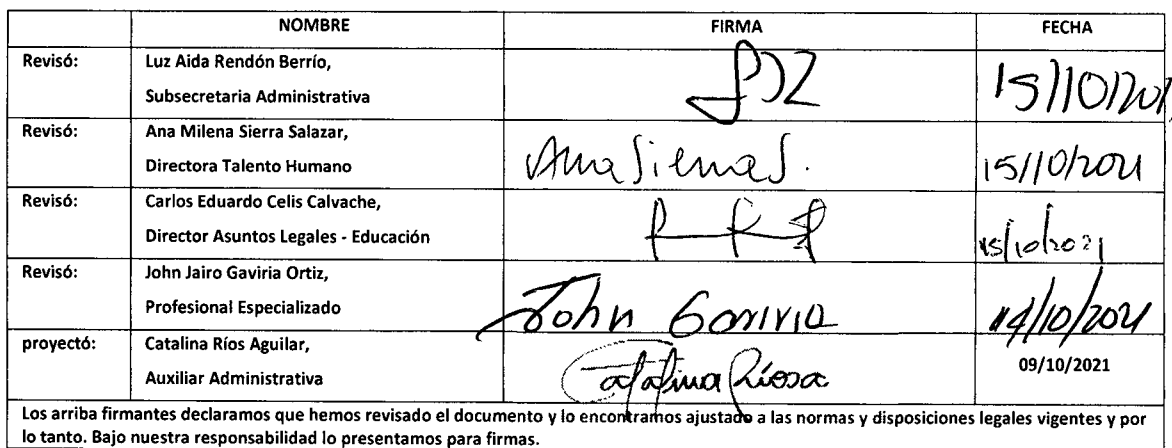 NOMBRE FIRMA FECHA
Revisó: Luz Aida Rendón Berrío, 15/10/2021
Subsecretaria Administrativa
Revisó: Ana Milena Sierra Salazar, Ana Sierra S. 15/10/2021
Directora Talento Humano
Revisó: Carlos Eduardo Celis Calvache, 15/10/2021
Director Asuntos Legales - Educación
Revisó: John Jairo Gaviria Ortiz,
Profesional Especializado John Gaviria 14/10/2021
proyectó: Catalina Ríos Aguilar, Catalina Ríos A 09/10/2021
Auxiliar Administrativa
Los arriba firmantes declaramos que hemos revisado el documento y lo encontramos ajustado a las normas y disposiciones legales vigentes y por
lo tanto. Bajo nuestra responsabilidad lo presentamos para firmas.